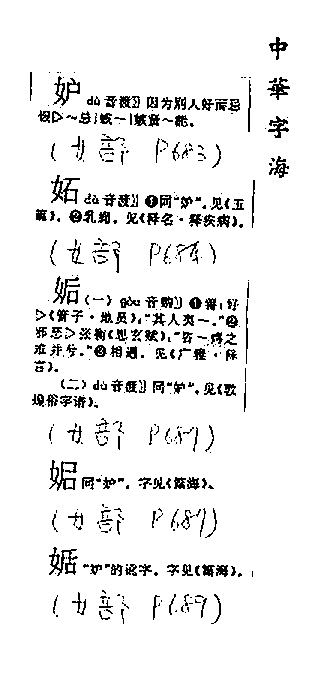 中華字海
妒 dù 音渡〗因为别人好而忌
恨▷~忌|嫉~|嫉贤~能。
(女部 P683)
妬 dù 音渡〗❶同“妒”,见《玉
篇》。❷乳痈,见《释名·释疾病》。
(女部 P684)
姤 (一) gòu 音购〗❶善;好
▷《管子·地员》:“其人夷~。”❷
邪恶▷张衡《思玄赋》:“咨~嫮之
难并兮。”❸相遇,见《广雅·释
言》。
(二) dù 音渡〗同“妒”,见《敦
煌俗字谱》。
(女部 P687)
同“妒”。字见《篇海》。
(女部 P687)
“妒”的讹字。字见《篇海》。
(女部 P689)